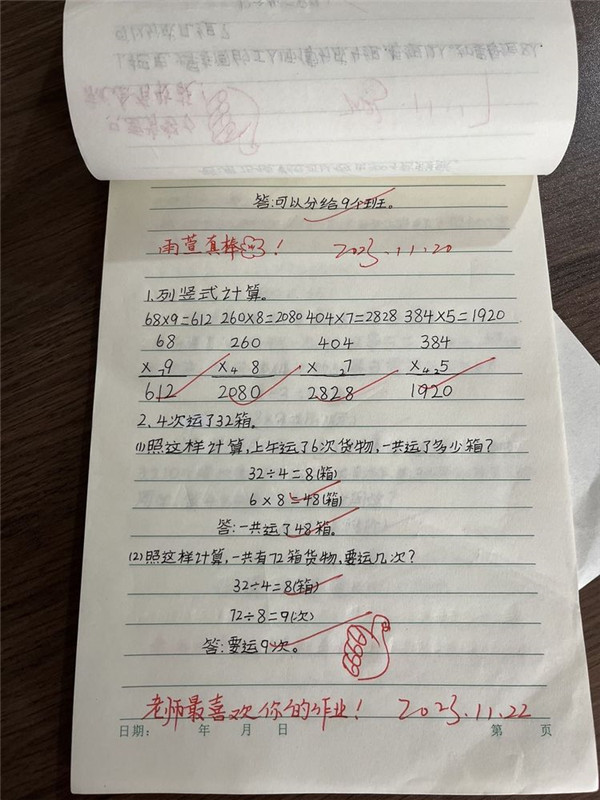 答:可以分给9个班。
雨萱真棒! 2023.11.20
1.列竖式计算。
68×9=612 260×8=2080 404×7=2828 384×5=1920
68 260 404 384
×₇9 ×₄ 8 × ₂7 ×₄₂5
612 2080 2828 1920
2.4次运了32箱。
(1)照这样计算,上午运了6次货物,一共运了多少箱?
32÷4=8(箱)
6×8=48(箱)
答:一共运了48箱。
(2)照这样计算,一共有72箱货物,要运几次?
32÷4=8(箱)
72÷8=9(次)
答:要运9次。
老师最喜欢你的作业! 2023.11.22
日期: 年 月 日 第 页